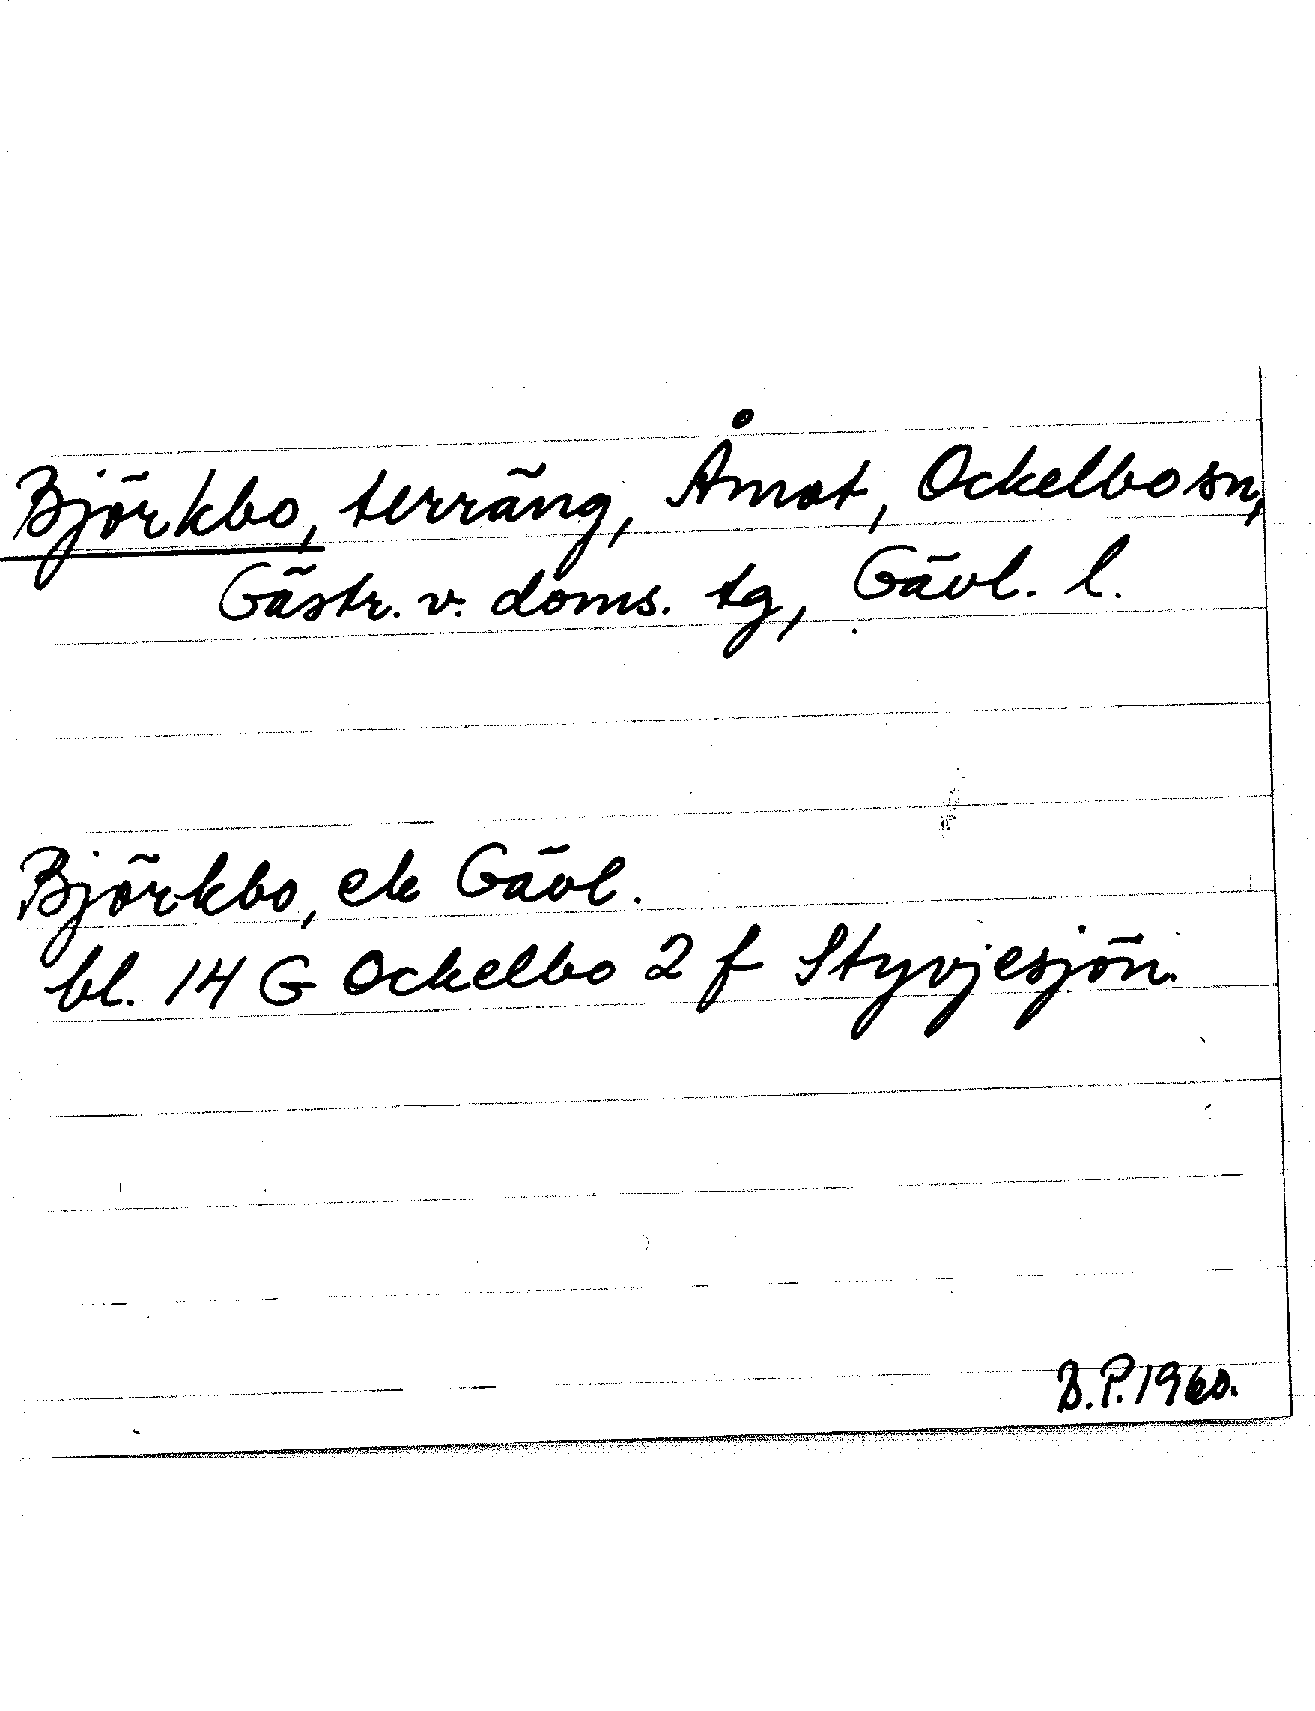 Björkbo, terräng, Åmot, Ockelbo sn,
Gästr. v. doms. tg, Gävl. l.
Björkbo, ek Gävl.
bl. 14 G Ockelbo 2 f Styvjesjön.
B.P. 1960.